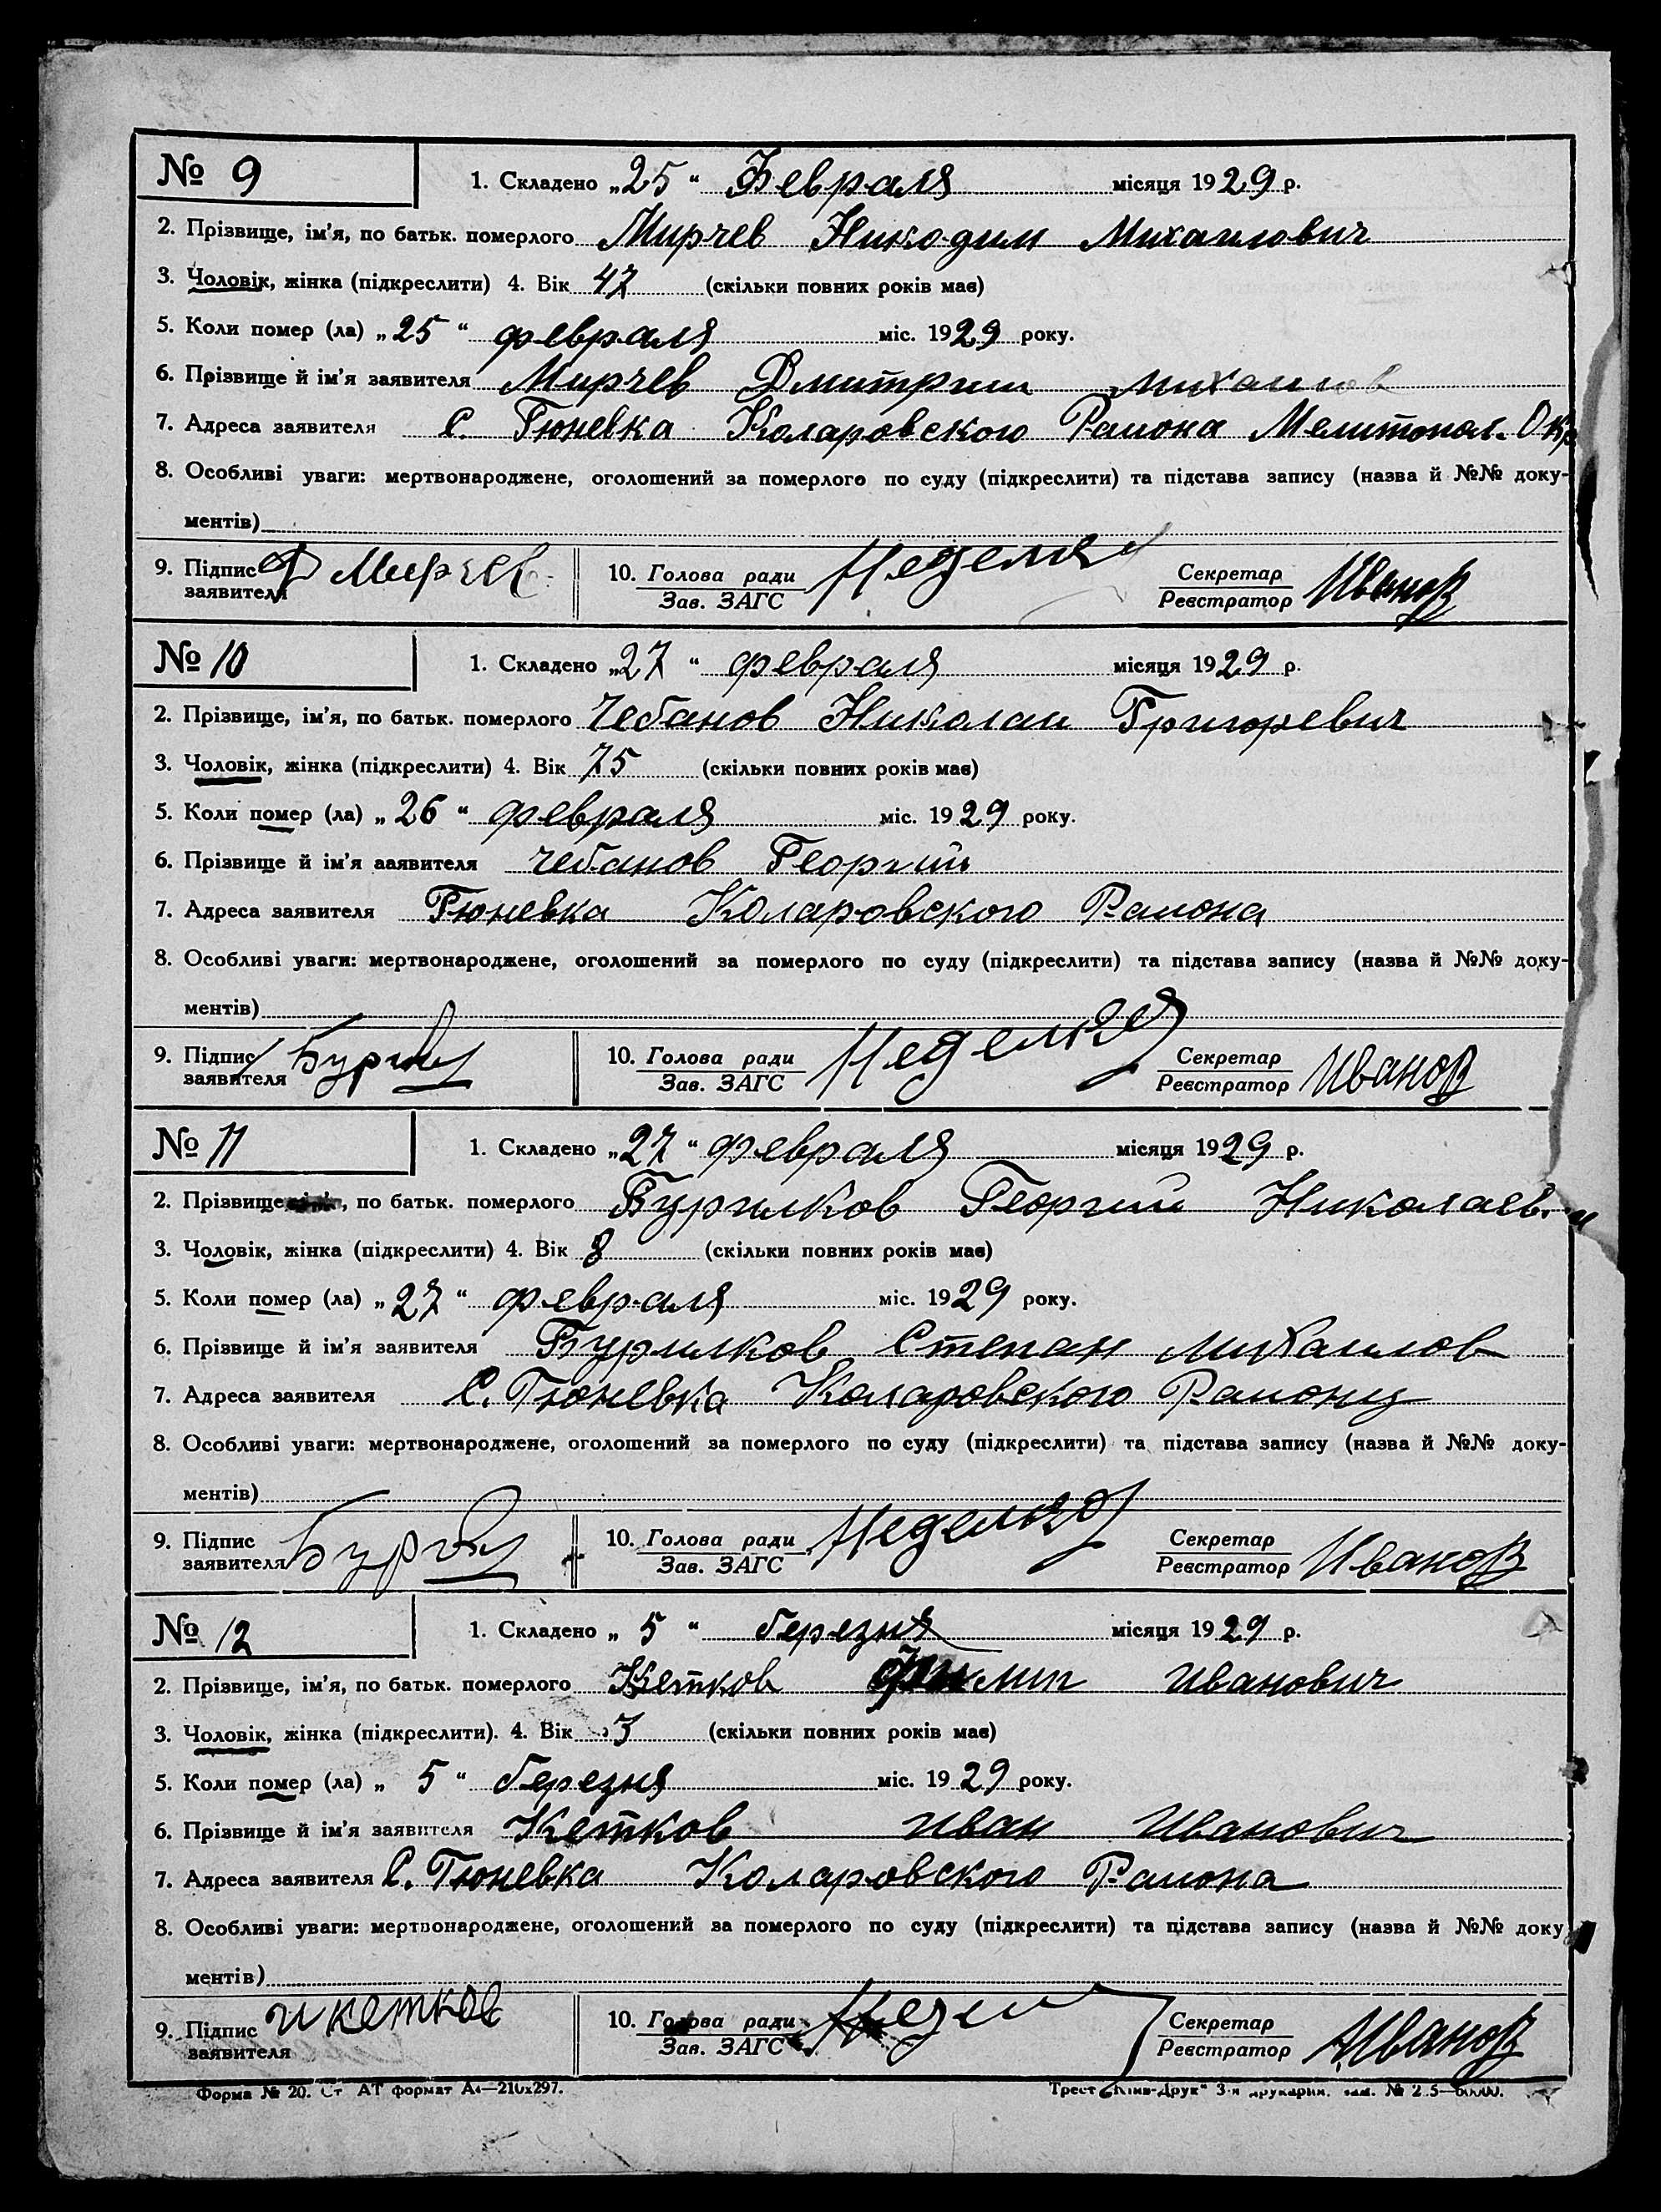 № 9 1. Складено „25“ Февраля місяця 1929 р.
2. Прізвище, ім'я, по батьк. померлого Мирчев Никодим Михаилович
3. Чоловік, жінка (підкреслити) 4. Вік 47 (скільки повних років має)
5. Коли помер (ла) „25“ февраля міс. 1929 року.
6. Прізвище й ім'я заявителя Мирчев Дмитрии михаилов
7. Адреса заявителя С. Гюневка Коларовского Раиона Мелитопол. Окр
8. Особливі уваги: мертвонароджене, оголошений за померлого по суду (підкреслити) та підстава запису (назва й №№ доку-
ментів)
9. Підпис заявителя Д Мирчев 10. Голова ради Зав. ЗАГС Секретар Реєстратор Иванов
№ 10 1. Складено „27“ февраля місяця 1929 р.
2. Прізвище, ім'я, по батьк. померлого Чебанов Николаи Григоревич
3. Чоловік, жінка (підкреслити) 4. Вік 75 (скільки повних років має)
5. Коли помер (ла) „26“ февраля міс. 1929 року.
6. Прізвище й ім'я заявителя чебанов Георгий
7. Адреса заявителя Гюневка Коларовского Раиона
8. Особливі уваги: мертвонароджене, оголошений за померлого по суду (підкреслити) та підстава запису (назва й №№ доку-
ментів)
9. Підпис заявителя 10. Голова ради Зав. ЗАГС Секретар Реєстратор Иванов
№ 11 1. Складено „27“ февраля місяця 1929 р.
2. Прізвище, по батьк. померлого Бурилков Георгий Николаев.
3. Чоловік, жінка (підкреслити) 4. Вік 8 (скільки повних років має)
5. Коли помер (ла) „27“ февраля міс. 1929 року.
6. Прізвище й ім'я заявителя Бурилков Степан михаилов
7. Адреса заявителя С. Гюневка Коларовского Раиону
8. Особливі уваги: мертвонароджене, оголошений за померлого по суду (підкреслити) та підстава запису (назва й №№ доку-
ментів)
9. Підпис заявителя 10. Голова ради Зав. ЗАГС Секретар Реєстратор Иванов
№ 12 1. Складено „5“ березня місяця 1929 р.
2. Прізвище, ім'я, по батьк. померлого Кетков Филип Иванович
3. Чоловік, жінка (підкреслити). 4. Вік 3 (скільки повних років має)
5. Коли помер (ла) „5“ березня міс. 1929 року.
6. Прізвище й ім'я заявителя Кетков Иван Иванович
7. Адреса заявителя С. Гюневка Коларовского Раиона
8. Особливі уваги: мертвонароджене, оголошений за померлого по суду (підкреслити) та підстава запису (назва й №№ доку
ментів)
9. Підпис заявителя и кетков 10. Голова ради Зав. ЗАГС Секретар Реєстратор Иванов
Форма № 20. Ст АТ формат А4—210х297. Трест „Київ-Друк“ 3-я друкарня.